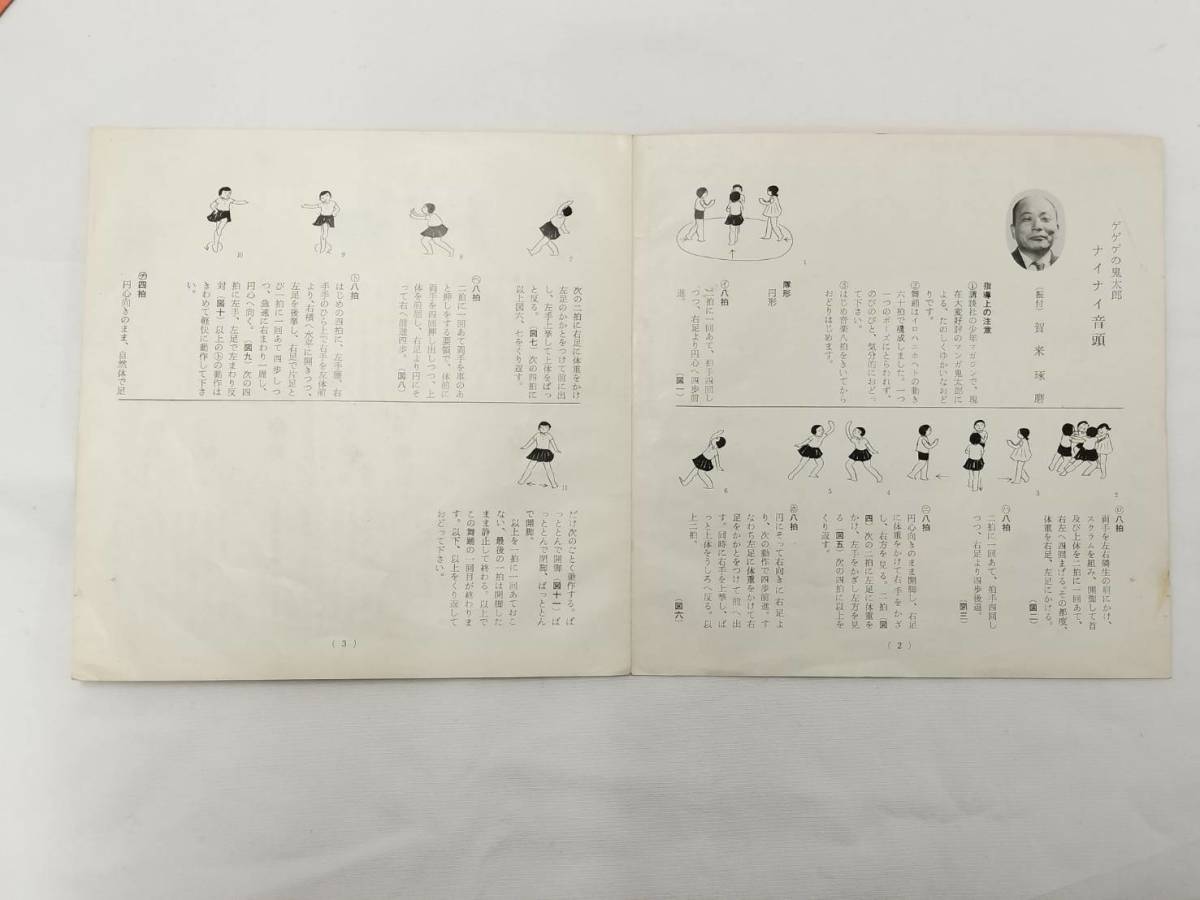 ゲゲゲの鬼太郎
ナイナイ音頭
(振付) 賀来琢磨
指導上の注意
①講談社の少年マガジンで、現
在大変好評のマンガ鬼太郎に
よる、たのしくゆかいなおど
りです。
②舞踊はイロハニホヘトの動き
六十拍で構成しました。一つ
一つのポーズにとらわれず、
のびのびと、気分的におどっ
て下さい。
③はじめ音楽八拍をきいてから
おどりはじめます。
隊形
円形
㋑八拍
二拍に一回あて、拍手四回し
つつ、右足より円心へ四歩前
進。 (図一)
1
㋺八拍
両手を左右隣生の肩にかけ、
スクラムを組み、開脚して首
及び上体を二拍に一回あて、
右左へ四回まげる。その都度、
体重を右足、左足にかける。
(図二)
㋩八拍
二拍に一回あて、拍手四回し
つつ、右足より四歩後退。
(図三)
㋥八拍
円心向きのまま開脚し、右足
に体重をかけて右手をかざ
し、右方を見る。二拍(図
四)次の二拍に左足に体重を
かけ、左手をかざし左方を見
る(図五)次の四拍に以上を
くり返す。
㋭八拍
円にそって右向きに右足よ
り、次の動作で四歩前進。す
なわち左足に体重をかけて右
足をかかとをつけて前へ出
す。同時に右手を上挙し、ぱ
っと上体をうしろへ反る。以
上二拍。 (図六)
2
3
4
5
6
(2)
次の二拍に右足に体重をかけ
左足のかかとをつけて前に出
し、左手上挙して上体をぱっ
と反る。(図七)次の四拍に
以上図六、七をくり返す。
㋬八拍
二拍に一回あて両手を車のあ
と押しをする要領で、体前に
両手を四回押し出しつつ、上
体を前屈し、右足より円にそ
って右へ前進四歩。(図八)
㋣八拍
はじめの四拍に、左手腰、右
手手のひら上で右手を左体前
より、右横へ水平に開きつつ、
左足を後挙し、右足で片足と
び一拍に一回あて四歩しつ
つ、急速に右まわり一周し、
円心へ向く。(図九)次の四
拍に左手、左足で左まわり反
対(図十)以上の㋣の動作は
きわめて軽快に動作して下さ
い。
㋠四拍
円心向きのまま、自然体で足
7
8
9
10
だけ次のごとく動作する。ぱ
っととんで開脚(図十一)ぱ
っととんで閉脚、ぱっととん
で開脚。
以上を一拍に一回あておこ
ない、最後の一拍は開脚した
まま静止して終わる。以上で
この舞踊の一回目が終わりま
す。以下、以上をくり返して
おどって下さい。
11
(3)